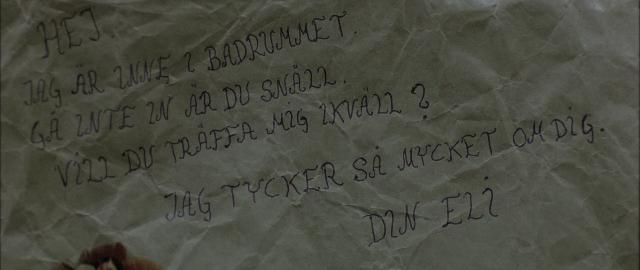 HEJ.
JAG ÄR INNE I BADRUMMET.
GÅ INTE IN ÄR DU SNÄLL.
VILL DU TRÄFFA MIG IKVÄLL?
JAG TYCKER SÅ MYCKET OM DIG.
DIN ELI